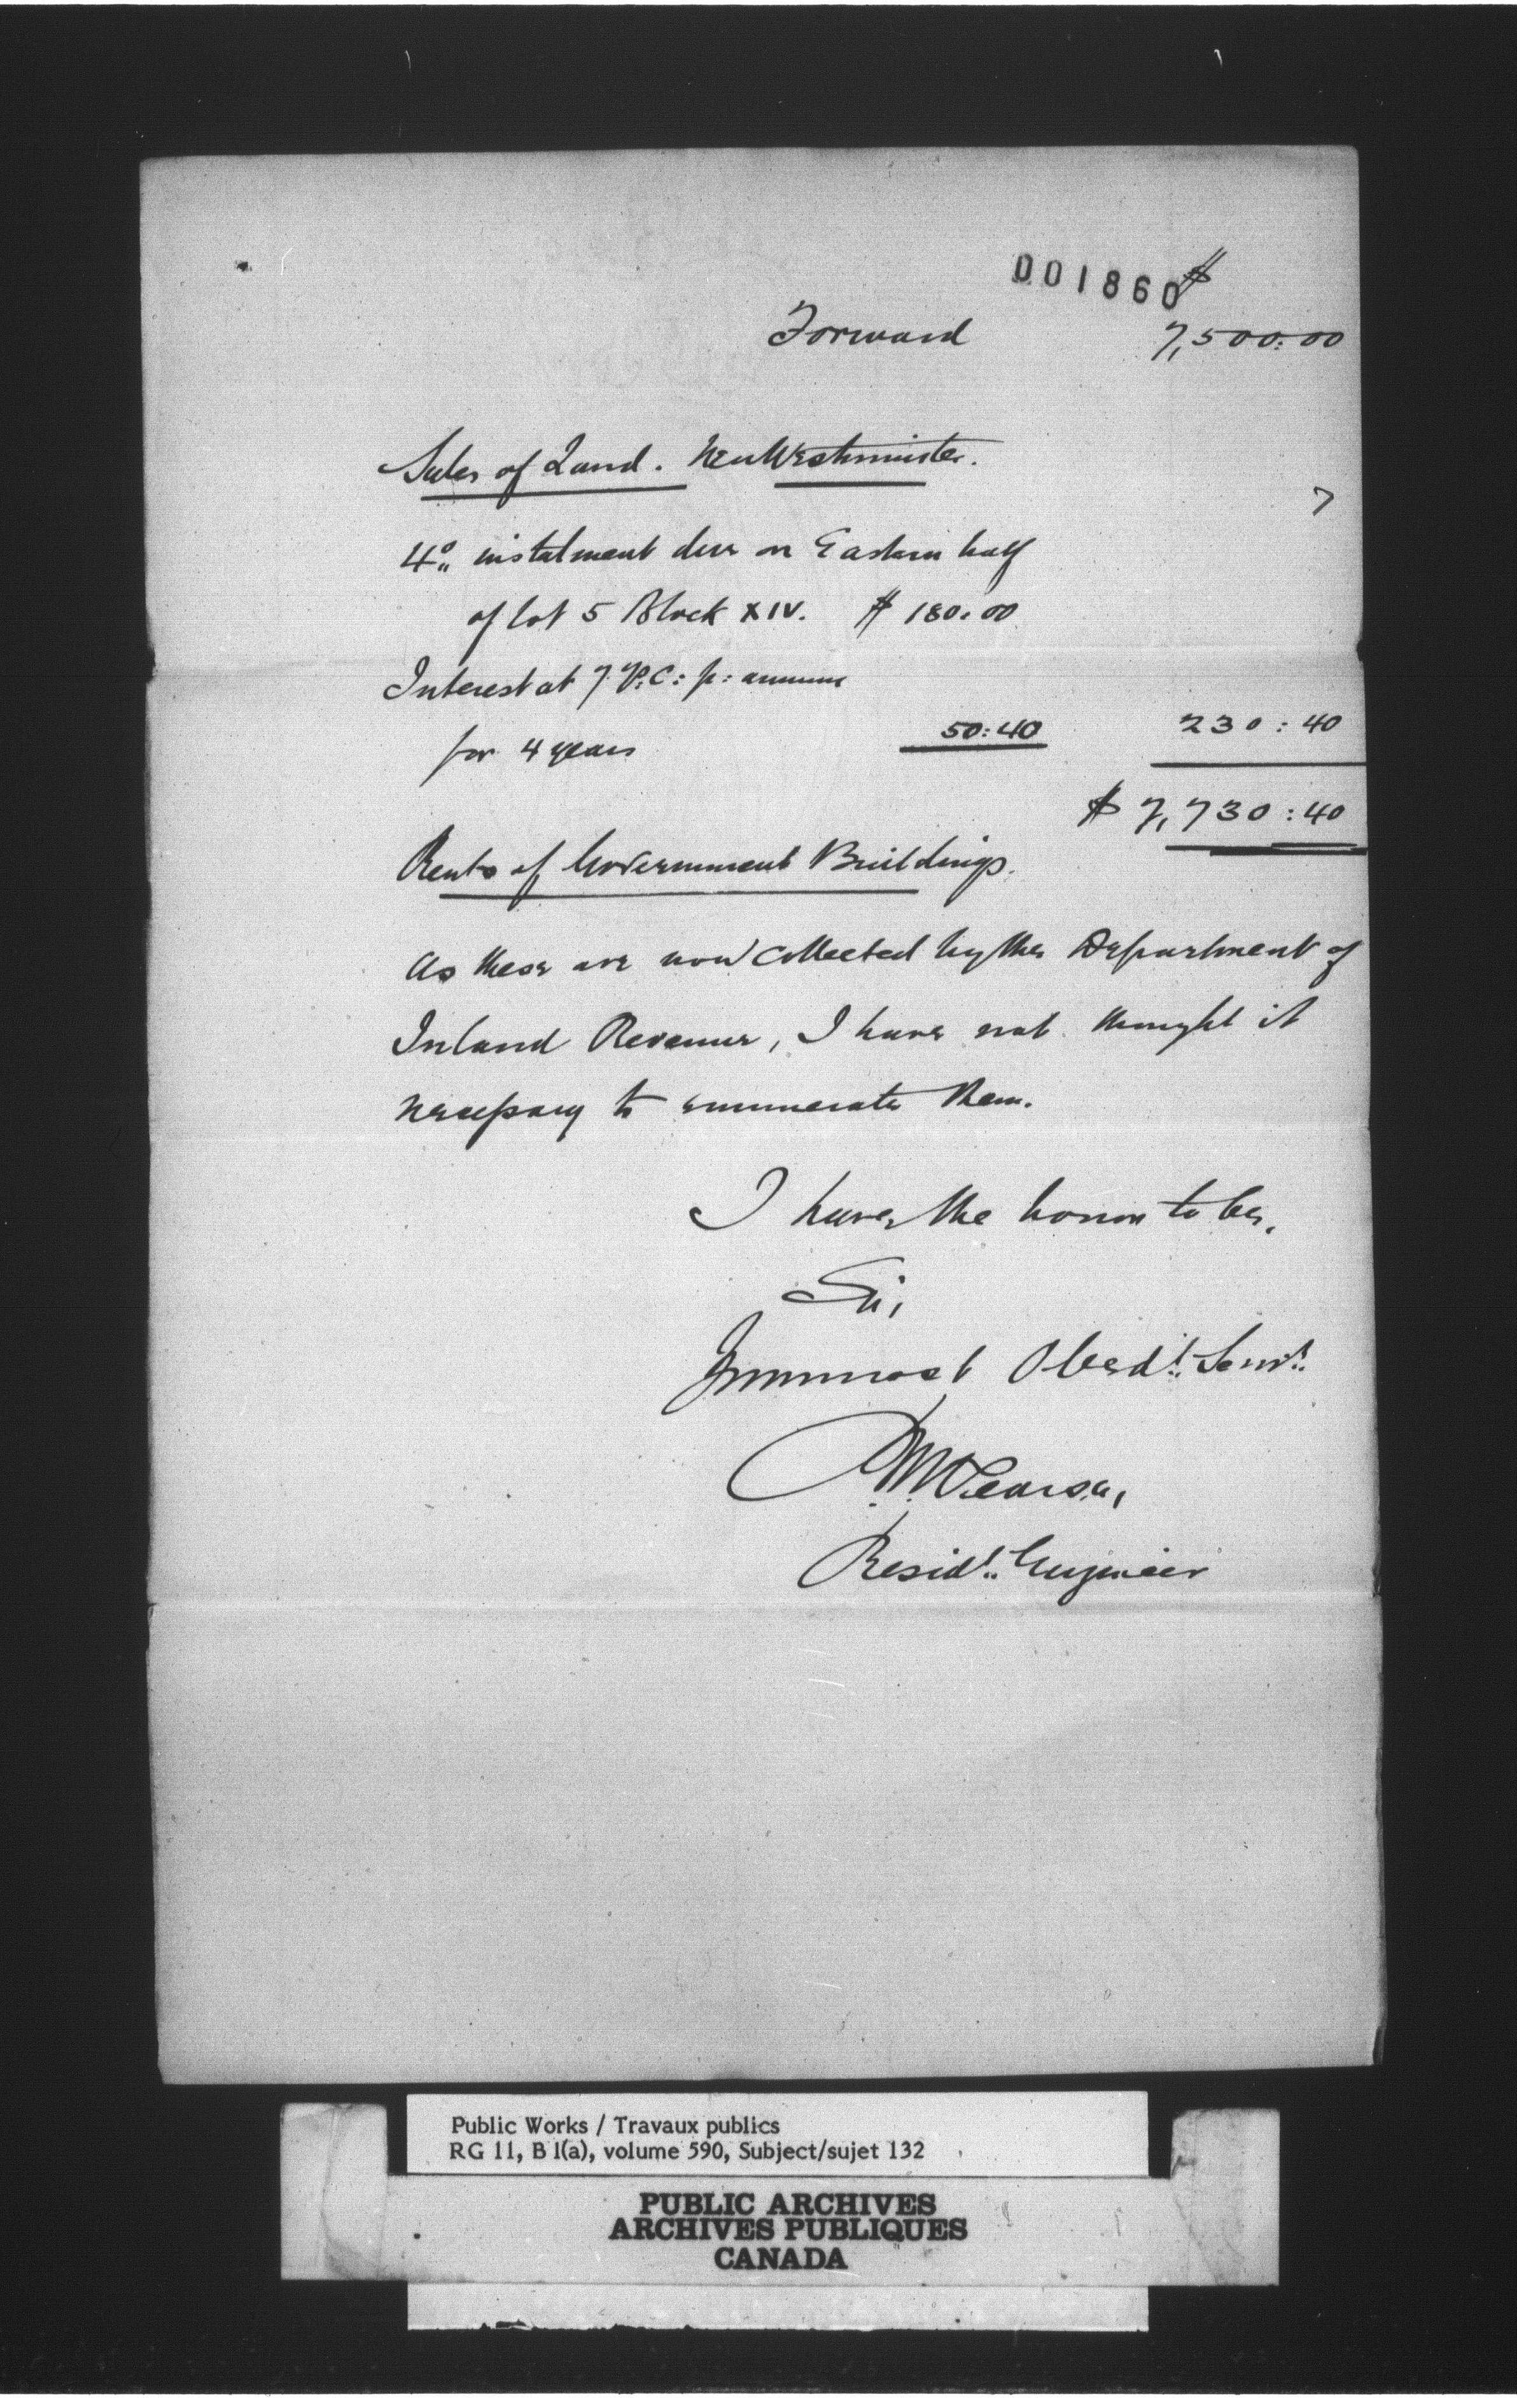 001860
$
Forward 7,500:00
Sales of Land. New Westminster.
7
4o instalment due on Eastern half
of lot 5 Block XIV. $ 180.00
Interest at 7 P.C: p: annum
for 4 years 50:40 230:40
$ 7,730:40
Rents of Government Buildings.
As these are now collected by the Department of
Inland Revenue, I have not thought it
necessary to enumerate them.
I have the honor to be,
Sir,
Yr most Obedt. Servt.
Pearse,
Residt. Engineer
Public Works / Travaux publics
RG 11, B 1(a), volume 590, Subject/sujet 132
PUBLIC ARCHIVES
ARCHIVES PUBLIQUES
CANADA